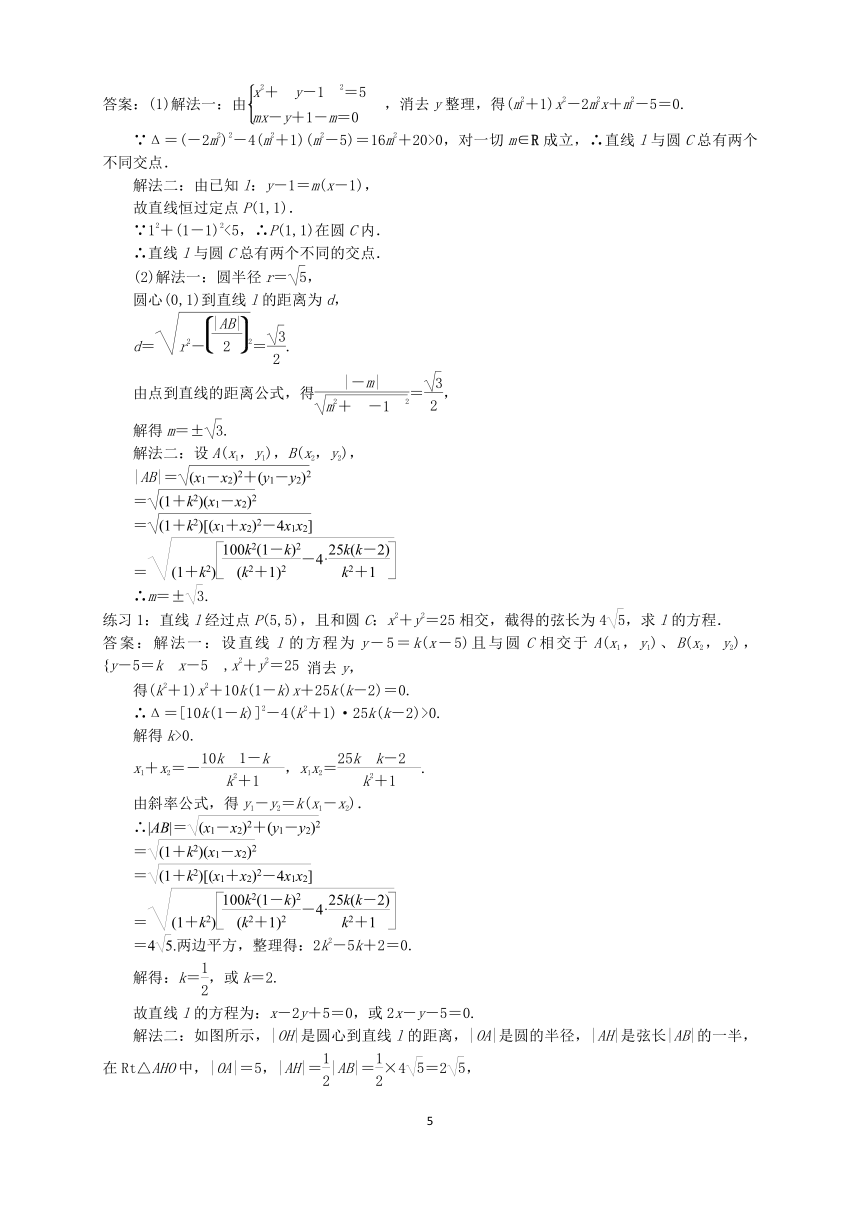 答案：(1)解法一：由{x²＋ y－1 ²＝5 mx－y＋1－m＝0 ，消去 y 整理，得(m²＋1)x²－2m²x＋m²－5＝0.
∵Δ＝(－2m²)²－4(m²＋1)(m²－5)＝16m²＋20>0，对一切 m∈R 成立，∴直线 l 与圆 C 总有两个
不同交点．
解法二：由已知 l：y－1＝m(x－1)，
故直线恒过定点 P(1,1)．
∵1²＋(1－1)²<5，∴P(1,1)在圆 C 内．
∴直线 l 与圆 C 总有两个不同的交点．
(2)解法一：圆半径 r＝√5，
圆心(0,1)到直线 l 的距离为 d，
d＝√(r²－(|AB|/2)²)＝√3/2.
由点到直线的距离公式，得|－m|/√(m²＋ －1 ²)＝√3/2，
解得 m＝±√3.
解法二：设 A(x₁，y₁)，B(x₂，y₂)，
|AB|＝√((x₁－x₂)²＋(y₁－y₂)²)
＝√((1＋k²)(x₁－x₂)²)
＝√((1＋k²)[(x₁＋x₂)²－4x₁x₂])
＝√((1＋k²)[100k²(1－k)²/(k²＋1)²－4·25k(k－2)/(k²＋1)])
∴m＝±√3.
练习 1：直线 l 经过点 P(5,5)，且和圆 C：x²＋y²＝25 相交，截得的弦长为 4√5，求 l 的方程．
答案：解法一：设直线 l 的方程为 y－5＝k(x－5)且与圆 C 相交于 A(x₁，y₁)、B(x₂，y₂)，
{y－5＝k x－5 ,x²＋y²＝25 消去 y，
得(k²＋1)x²＋10k(1－k)x＋25k(k－2)＝0.
∴Δ＝[10k(1－k)]²－4(k²＋1)·25k(k－2)>0.
解得 k>0.
x₁＋x₂＝－10k 1－k /(k²＋1)，x₁x₂＝25k k－2 /(k²＋1).
由斜率公式，得 y₁－y₂＝k(x₁－x₂)．
∴|AB|＝√((x₁－x₂)²＋(y₁－y₂)²)
＝√((1＋k²)(x₁－x₂)²)
＝√((1＋k²)[(x₁＋x₂)²－4x₁x₂])
＝√((1＋k²)[100k²(1－k)²/(k²＋1)²－4·25k(k－2)/(k²＋1)])
＝4√5.两边平方，整理得：2k²－5k＋2＝0.
解得：k＝1/2，或 k＝2.
故直线 l 的方程为：x－2y＋5＝0，或 2x－y－5＝0.
解法二：如图所示，|OH|是圆心到直线 l 的距离，|OA|是圆的半径，|AH|是弦长|AB|的一半，
在 Rt△AHO 中，|OA|＝5，|AH|＝1/2|AB|＝1/2×4√5＝2√5，
5